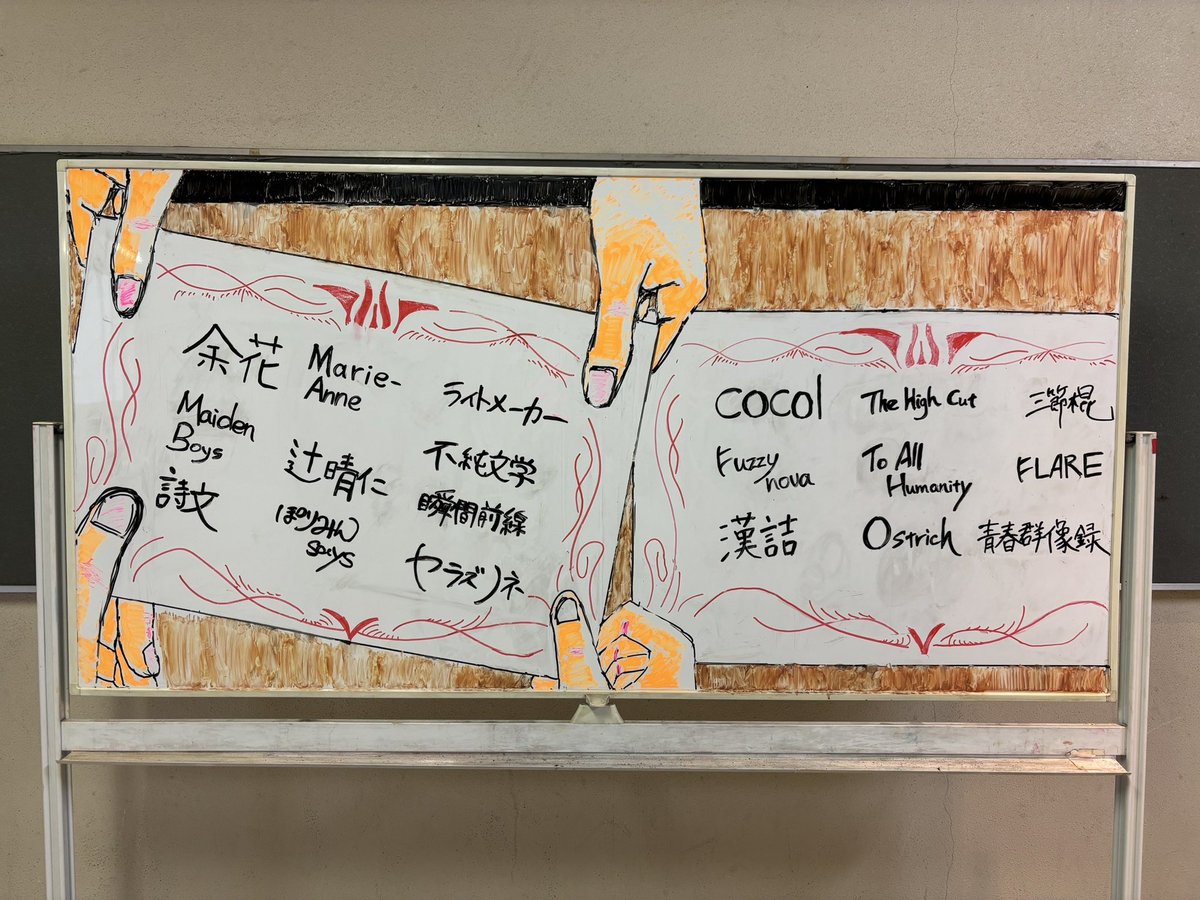 余花
Marie-
Anne
ライトメーカー
Maiden
Boys
辻晴仁
不純文学
詩文
ぽりみん
spays
瞬間前線
ヤラズノネ
cocol
The High Cut
三節棍
Fuzzy
nova
To All
Humanity
FLARE
漢詰
Ostrich
青春群像録